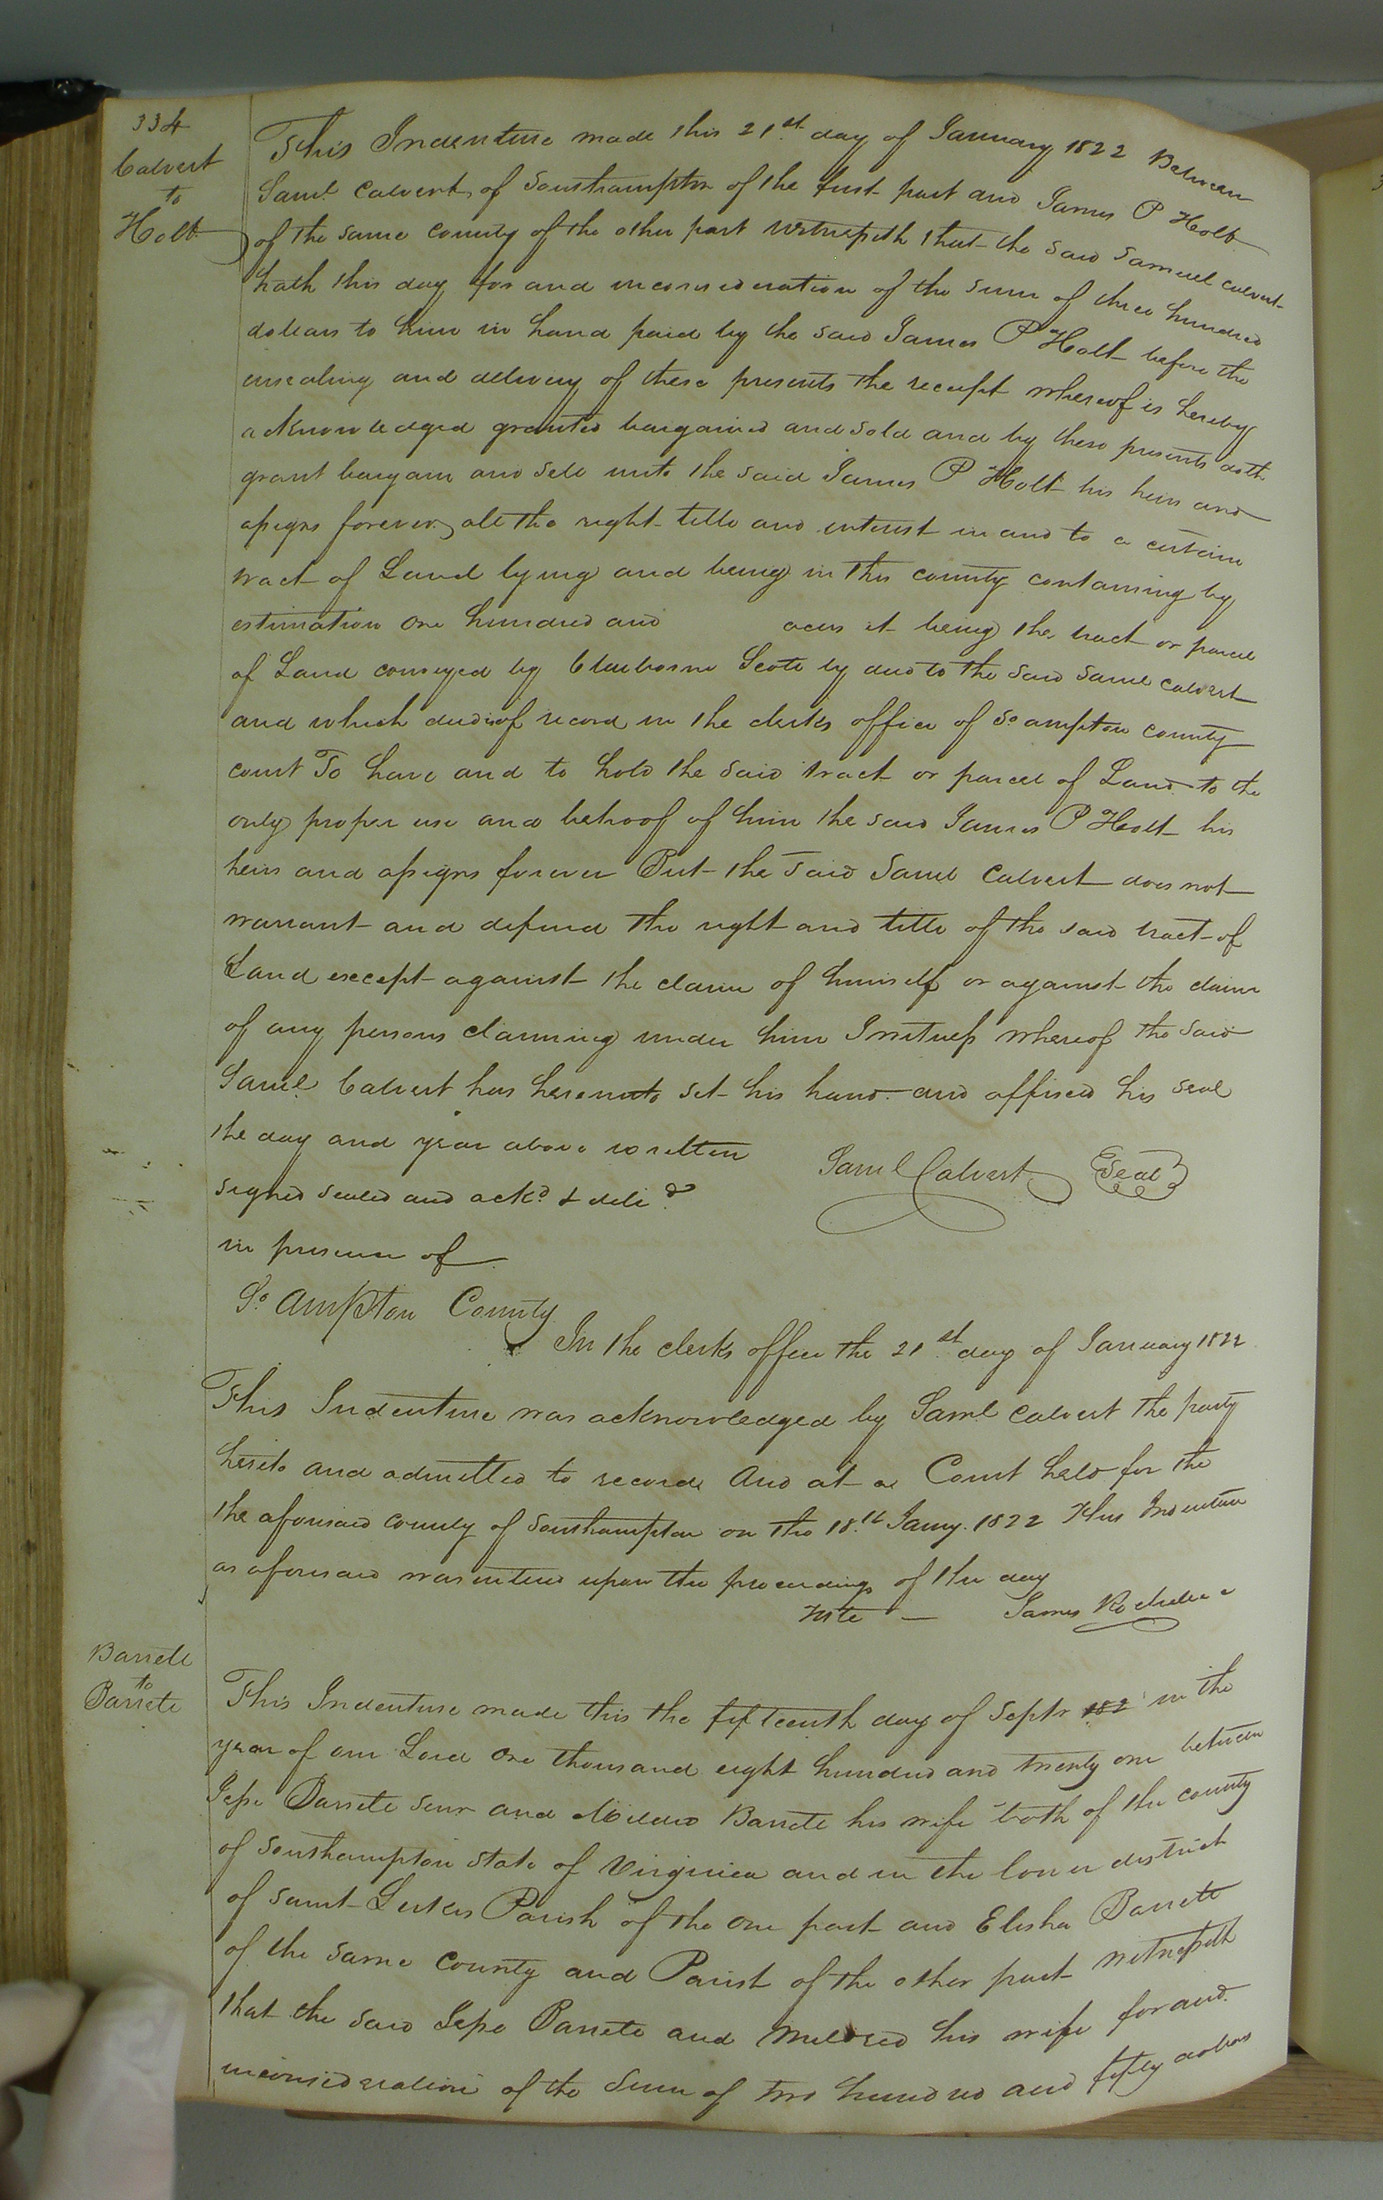 334
Calvert
to
Holt
This Indenture made this 21st day of January 1822 Between
Saml Calvert of Southampton of the first part and James P Holt
of the same county of the other part witnesseth that the said Samuel Calvert
hath this day for and in consideration of the sum of three hundred
dollars to him in hand paid by the said James P Holt before the
ensealing and delivery of these presents the receipt whereof is hereby
acknowledged granted bargained and sold and by these presents doth
grant bargain and sell unto the said James P Holt his heirs and
assigns forever all the right title and interest in and to a certain
tract of Land lying and being in this county containing by
estimation one hundred and acres it being the tract or parcel
of Land conveyed by Claiborne Scott by deed to the said Saml Calvert
and which deed is of record in the clerks office of So ampton county
court To have and to hold the said tract or parcel of Land to the
only proper use and behoof of him the said James P Holt his
heirs and assigns forever But the said Saml Calvert does not
warrant and defend the right and title of the said tract of
Land except against the claim of himself or against the claim
of any persons claiming under him In witness whereof the said
Saml Calvert has hereunto set his hand and affixed his seal
the day and year above written
Saml Calvert Seal
signed sealed and ackd & delid
in presence of
So Ampton County
In the clerks office the 21st day of January 1822
This Indenture was acknowledged by Saml Calvert the party
hereto and admitted to record And at a Court held for the
the aforesaid county of Southampton on the 18th Jany. 1822 This Indenture
as aforesaid was entered upon the proceedings of the day
Teste — James Rochelle
Barrett
to
Barrett
This Indenture made this the fifteenth day of Septr 182 in the
year of our Lord one thousand eight hundred and twenty one between
Jesse Barrett senr and Mildred Barrett his wife both of the county
of Southampton State of Virginia and in the lower district
of Saint Lukes Parish of the one part and Elisha Barrett
of the same County and Parish of the other part witnesseth
that the said Jesse Barrett and Mildred his wife for and
in consideration of the sum of two hundred and fifty dollars